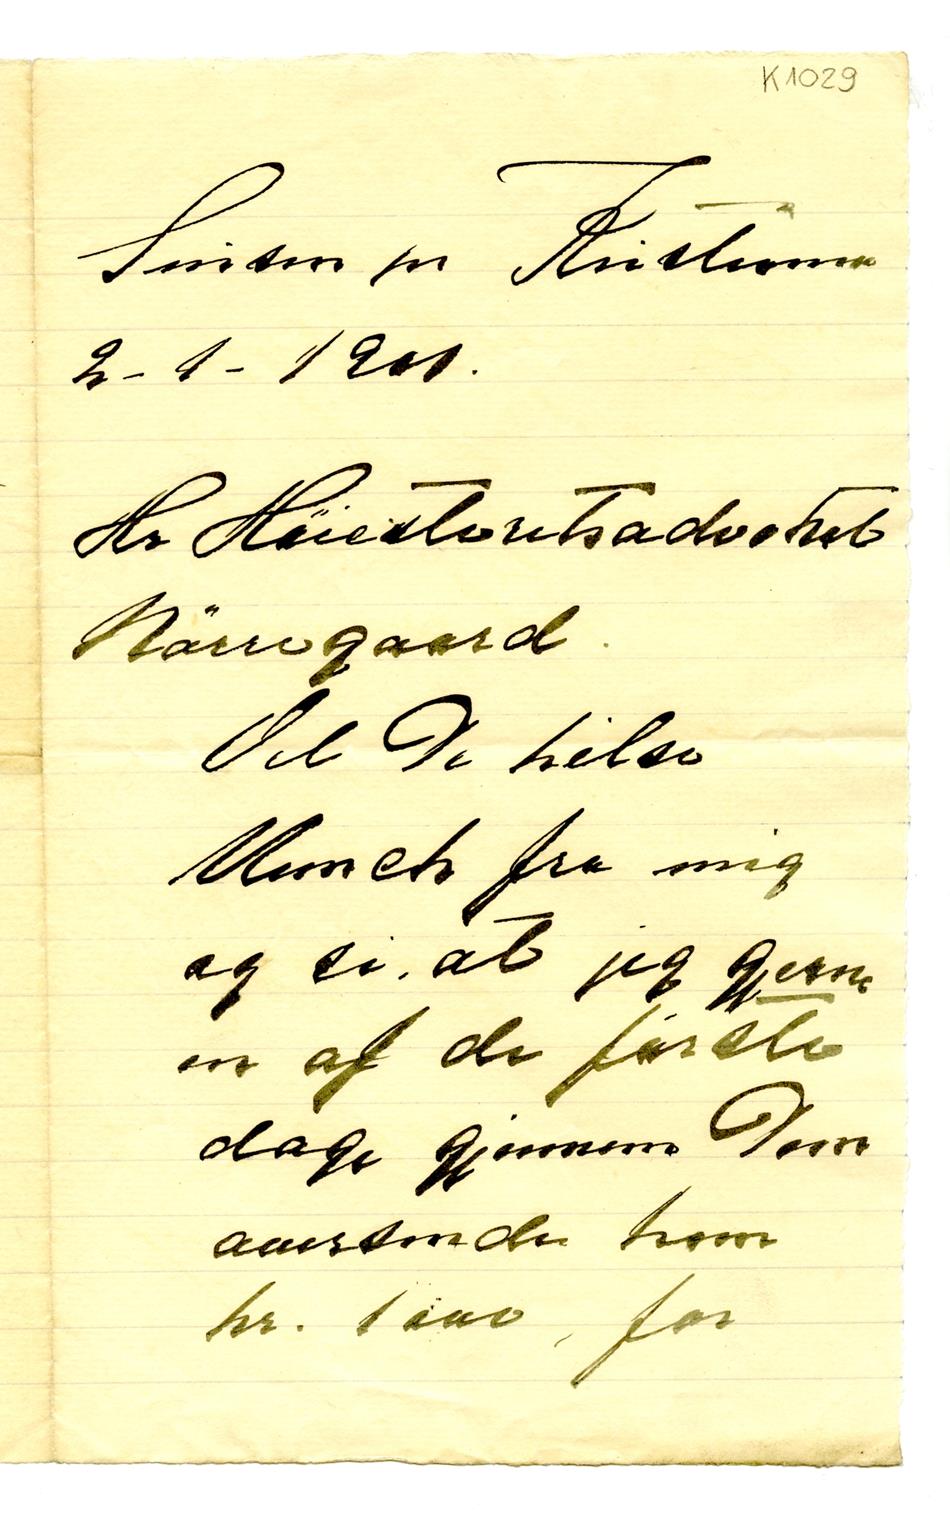 K1029
Sinsen pr Kristiania
2-1-1901.
Hr Höiesteretsadvokat
Nörregaard.
Vil De hilse
Munch fra mig
og si, at jeg gjerne
en af de förste
dage gjennem Dem
oversender ham
kr. 1000, for